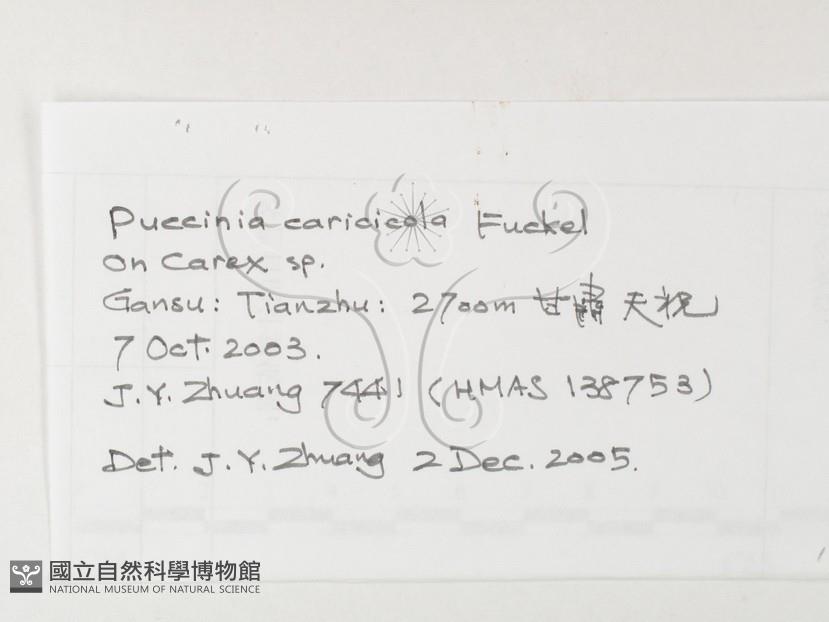 Puccinia caricicola Fuckel
on Carex sp.
Gansu: Tianzhu: 2700m 甘肅 天祝
7 Oct. 2003.
J.Y. Zhuang 7441 (HMAS 138753)
Det. J.Y. Zhuang 2 Dec. 2005.
國立自然科學博物館
NATIONAL MUSEUM OF NATURAL SCIENCE